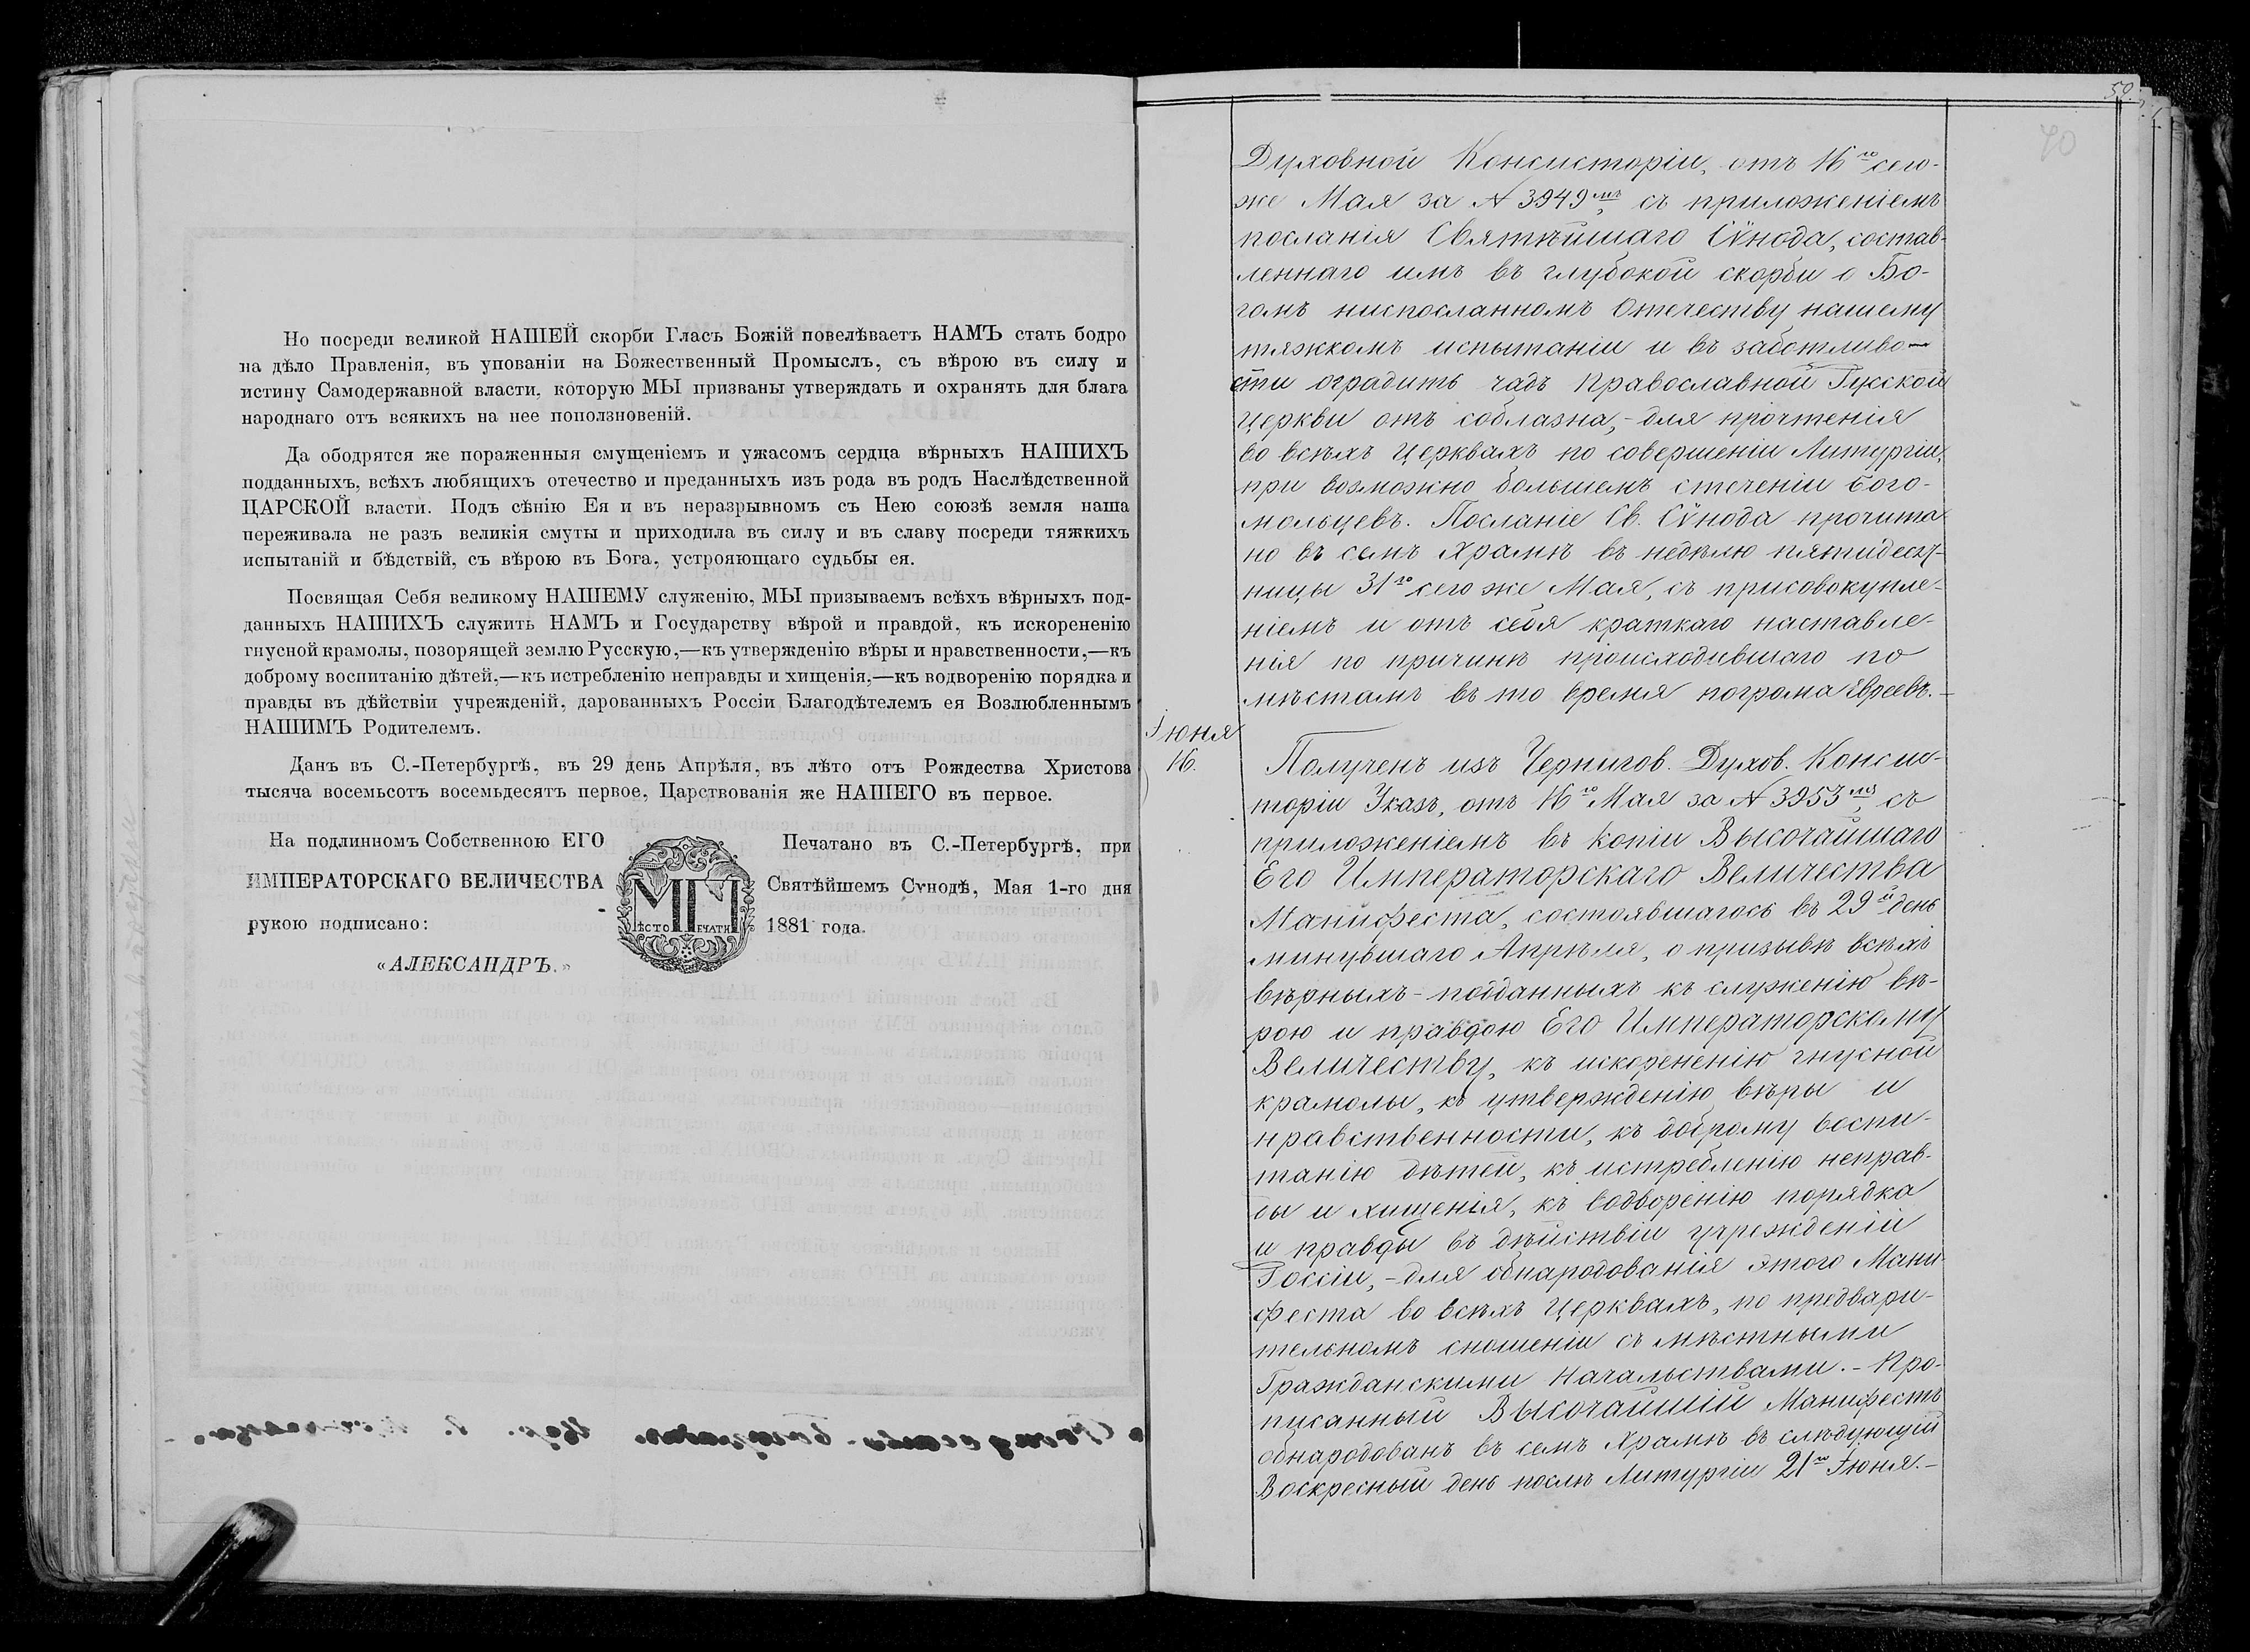 Но посреди великой НАШЕЙ скорби Гласъ Божій повелѣваетъ НАМЪ стать бодро
на дѣло Правленія, въ упованіи на Божественный Промыслъ, съ вѣрою въ силу и
истину Самодержавной власти, которую МЫ призваны утверждать и охранять для блага
народнаго отъ всякихъ на нее поползновеній.
Да ободрятся же пораженныя смущеніемъ и ужасомъ сердца вѣрныхъ НАШИХЪ
подданныхъ, всѣхъ любящихъ отечество и преданныхъ изъ рода въ родъ Наслѣдственной
ЦАРСКОЙ власти. Подъ сѣнію Ея и въ неразрывномъ съ Нею союзѣ земля наша
переживала не разъ великія смуты и приходила въ силу и въ славу посреди тяжкихъ
испытаній и бѣдствій, съ вѣрою въ Бога, устрояющаго судьбы ея.
Посвящая Себя великому НАШЕМУ служенію, МЫ призываемъ всѣхъ вѣрныхъ под-
данныхъ НАШИХЪ служить НАМЪ и Государству вѣрой и правдой, къ искорененію
гнусной крамолы, позорящей землю Русскую,—къ утвержденію вѣры и нравственности,—къ
доброму воспитанію дѣтей,—къ истребленію неправды и хищенія,—къ водворенію порядка и
правды въ дѣйствіи учрежденій, дарованныхъ Россіи Благодѣтелемъ ея Возлюбленнымъ
НАШИМЪ Родителемъ.
Данъ въ С.-Петербургѣ, въ 29 день Апрѣля, въ лѣто отъ Рождества Христова
тысяча восемьсотъ восемьдесятъ первое, Царствованія же НАШЕГО въ первое.
На подлинномъ Собственною ЕГО
ИМПЕРАТОРСКАГО ВЕЛИЧЕСТВА
рукою подписано:
«АЛЕКСАНДРЪ.»
МѢСТО ПЕЧАТИ
Печатано въ С.-Петербургѣ, при
Святѣйшемъ Сѵнодѣ, Мая 1-го дня
1881 года.
59.
70
Духовной Консисторіи, отъ 16го сего-
же Мая за № 3949мъ, съ приложеніемъ
посланія Святѣйшаго Сѵнода, состав-
леннаго имъ въ глубокой скорби о Бо-
гомъ ниспосланномъ Отечеству нашему
тяжкомъ испытаніи и въ заботливо-
сти оградить чадъ Православной Русской
Церкви отъ соблазна, - для прочтенія
во всѣхъ Церквахъ по совершеніи Литургіи,
при возможно большемъ стеченіи бого-
мольцевъ. Посланіе Св. Сѵнода прочита
но въ семъ Храмѣ въ недѣлю пятидесят-
ницы 31го сего же Мая, съ присовокупле-
ніемъ и отъ себя краткаго наставле-
нія по причинѣ происходившаго по
мѣстамъ въ то время погрома Евреевъ. -
Іюня
16.
Полученъ изъ Чернигов. Духов. Консис-
торіи Указъ, отъ 16го Мая за № 3953мъ, съ
приложеніемъ въ копіи Высочайшаго
Его Императорскаго Величества
Манифеста, состоявшагось въ 29й день
минувшаго Апрѣля, о призывѣ всѣхъ
вѣрныхъ-подданныхъ къ служенію вѣ-
рою и правдою Его Императорскому
Величеству, къ искорененію гнусной
крамолы, къ утвержденію вѣры и
нравственности, къ доброму воспи-
танію дѣтей, къ истребленію неправ-
ды и хищенія, къ водворенію порядка
и правды въ дѣйствіи учрежденій
Россіи, - для обнародованія этого Мани-
феста во всѣхъ Церквахъ, по предвари-
тельномъ сношеніи съ мѣстными
Гражданскими Начальствами. - Про-
писанный Высочайшій Манифестъ
обнародованъ въ семъ Храмѣ въ слѣдующій
Воскресный день послѣ Литургіи 21го Іюня. -